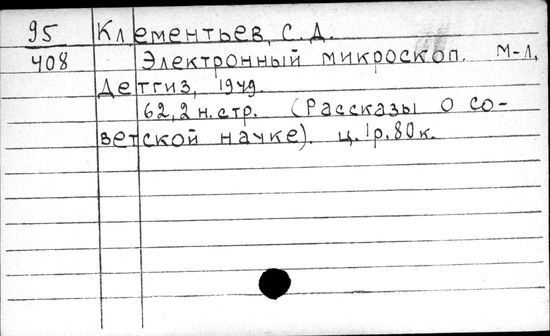 95 Клементьев, С. Д.
408 Электронный микроскоп. М-Л,
Детгиз, 1949.
62,2 н. стр. (Рассказы о со-
ветской науке). ц. 1р. 80к.